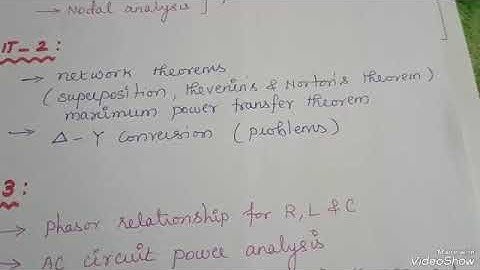 → Nodal analysis ]
IT-2:
→ network theorems
(superposition, Thevenin's & Norton's theorem)
maximum power transfer theorem
→ Δ-Y conversion (problems)
3:
→ phasor relationship for R, L & C
→ AC circuit power analysis
Made in
VideoShow